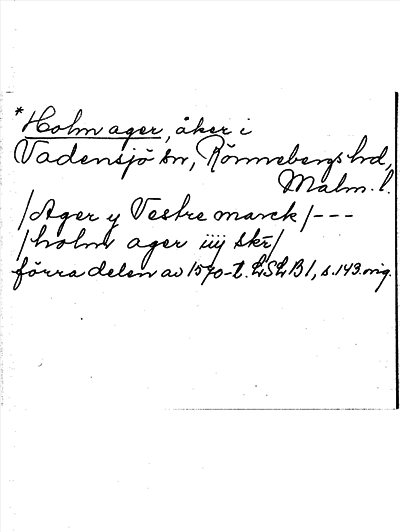 *Holm ager, åker i
Vadensjö sn, Rönnebergs hd,
Malm. l.
/Ager y Vestre marck/---
/holm ager iiij skr/
förra delen av 1570-t. LSLB1, s. 149. orig.